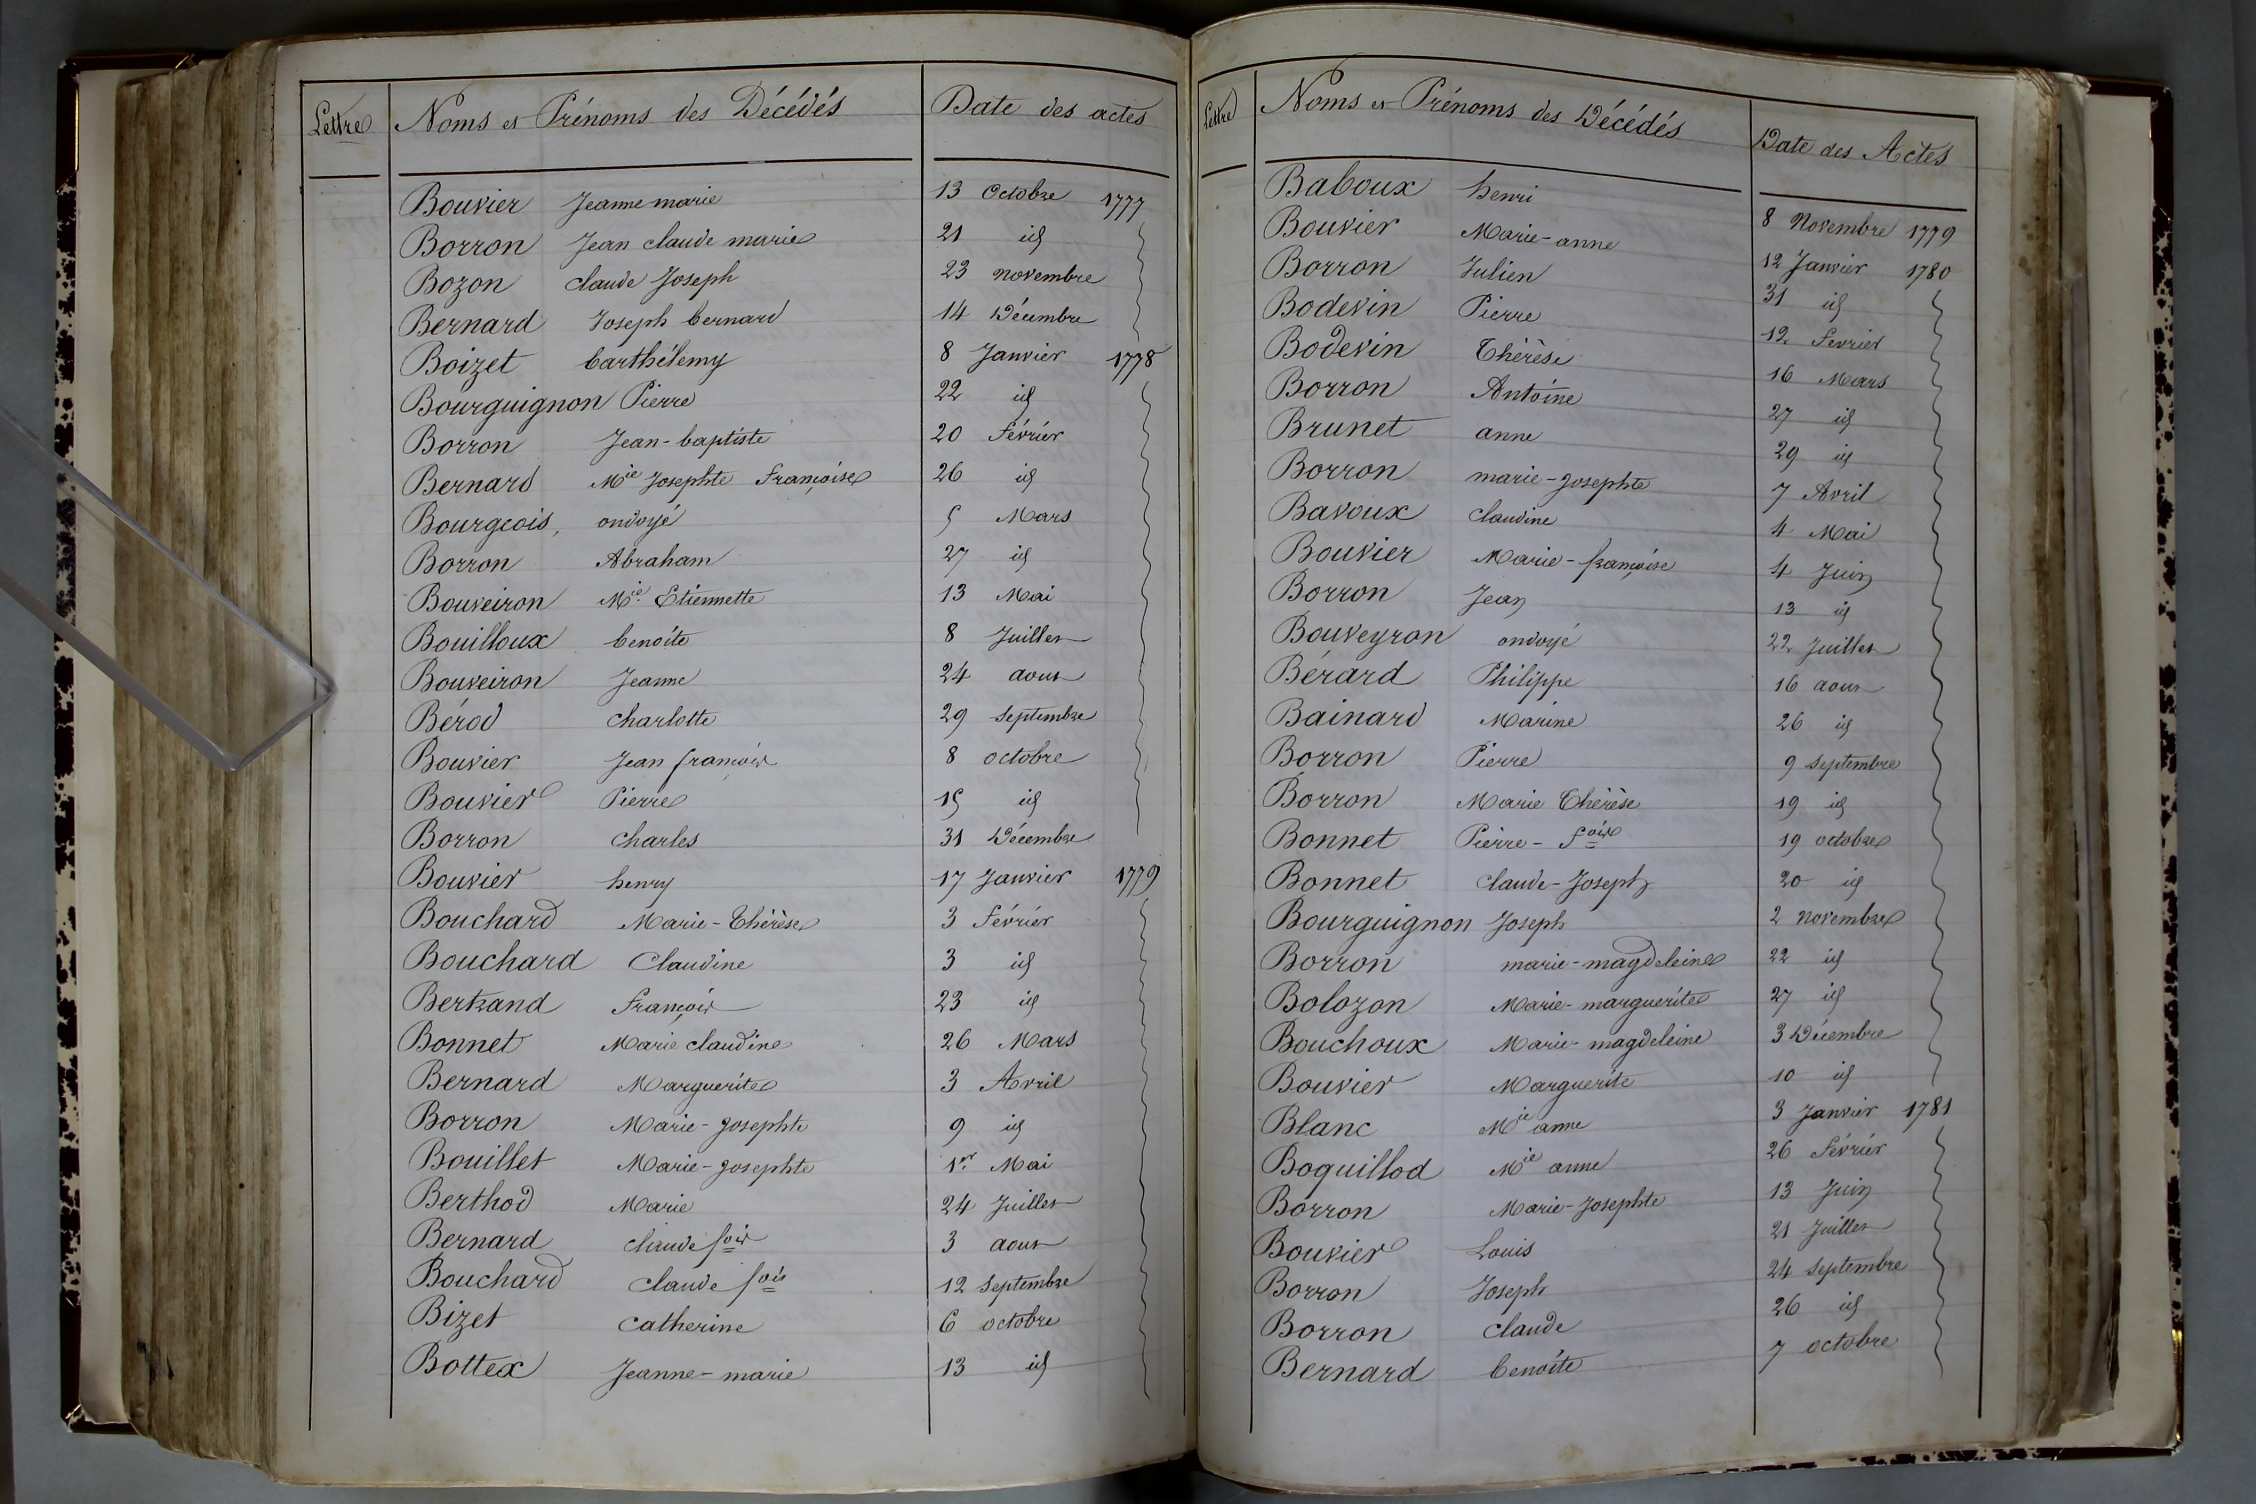 Lettre Noms et Prénoms des Décédés Date des actes
Bouvier Jeanne marie 13 Octobre 1777
Borron Jean claude marie 21 id
Bozon claude Joseph 23 novembre
Bernard Joseph bernard 14 Décembre
Boizet barthélemy 8 Janvier 1778
Bourguignon Pierre 22 id
Borron Jean-baptiste 20 février
Bernard Mie Josephte françoise 26 id
Bourgeois, ondoyé 5 Mars
Borron Abraham 27 id
Bouveiron Mie Etiennette 13 Mai
Bouilloux benoite 8 Juillet
Bouveiron Jeanne 24 aout
Bérod charlotte 29 septembre
Bouvier Jean françois 8 octobre
Bouvier Pierre 15 id
Borron charles 31 Décembre
Bouvier henry 17 Janvier 1779
Bouchard Marie-Thérèse 3 février
Bouchard Claudine 3 id
Bertrand françois 23 id
Bonnet Marie claudine 26 Mars
Bernard Marguerite 3 Avril
Borron Marie-Josephte 9 id
Bouillet Marie-Josephte 1er Mai
Berthod Marie 24 Juillet
Bernard claude fois 3 aout
Bouchard claude fois 12 septembre
Bizet catherine 6 octobre
Bottex Jeanne-marie 13 id
Lettre Noms et Prénoms des Décédés Date des Actes
Baboux henri 8 Novembre 1779
Bouvier Marie-anne 12 Janvier 1780
Borron Julien 31 id
Bodevin Pierre 12 fevrier
Bodevin Thérèse 16 Mars
Borron Antoine 27 id
Brunet anne 29 id
Borron marie-Josephte 7 Avril
Bavoux claudine 4 Mai
Bouvier Marie-françoise 4 Juin
Borron Jean 13 id
Bouveyron ondoyé 22 Juillet
Bérard Philippe 16 aout
Bainard Marine 26 id
Borron Pierre 9 septembre
Borron Marie Thérèse 19 id
Bonnet Pierre-fois 19 octobre
Bonnet claude-Joseph 20 id
Bourguignon Joseph 2 novembre
Borron marie-magdeleine 22 id
Bolozon Marie-marguerite 27 id
Bouchoux Marie-magdeleine 3 Décembre
Bouvier Marguerite 10 id
Blanc Mie anne 3 Janvier 1781
Boquillod Mie anne 26 février
Borron Marie-Josephte 13 Juin
Bouvier Louis 21 Juillet
Borron Joseph 24 septembre
Borron claude 26 id
Bernard benoite 7 octobre